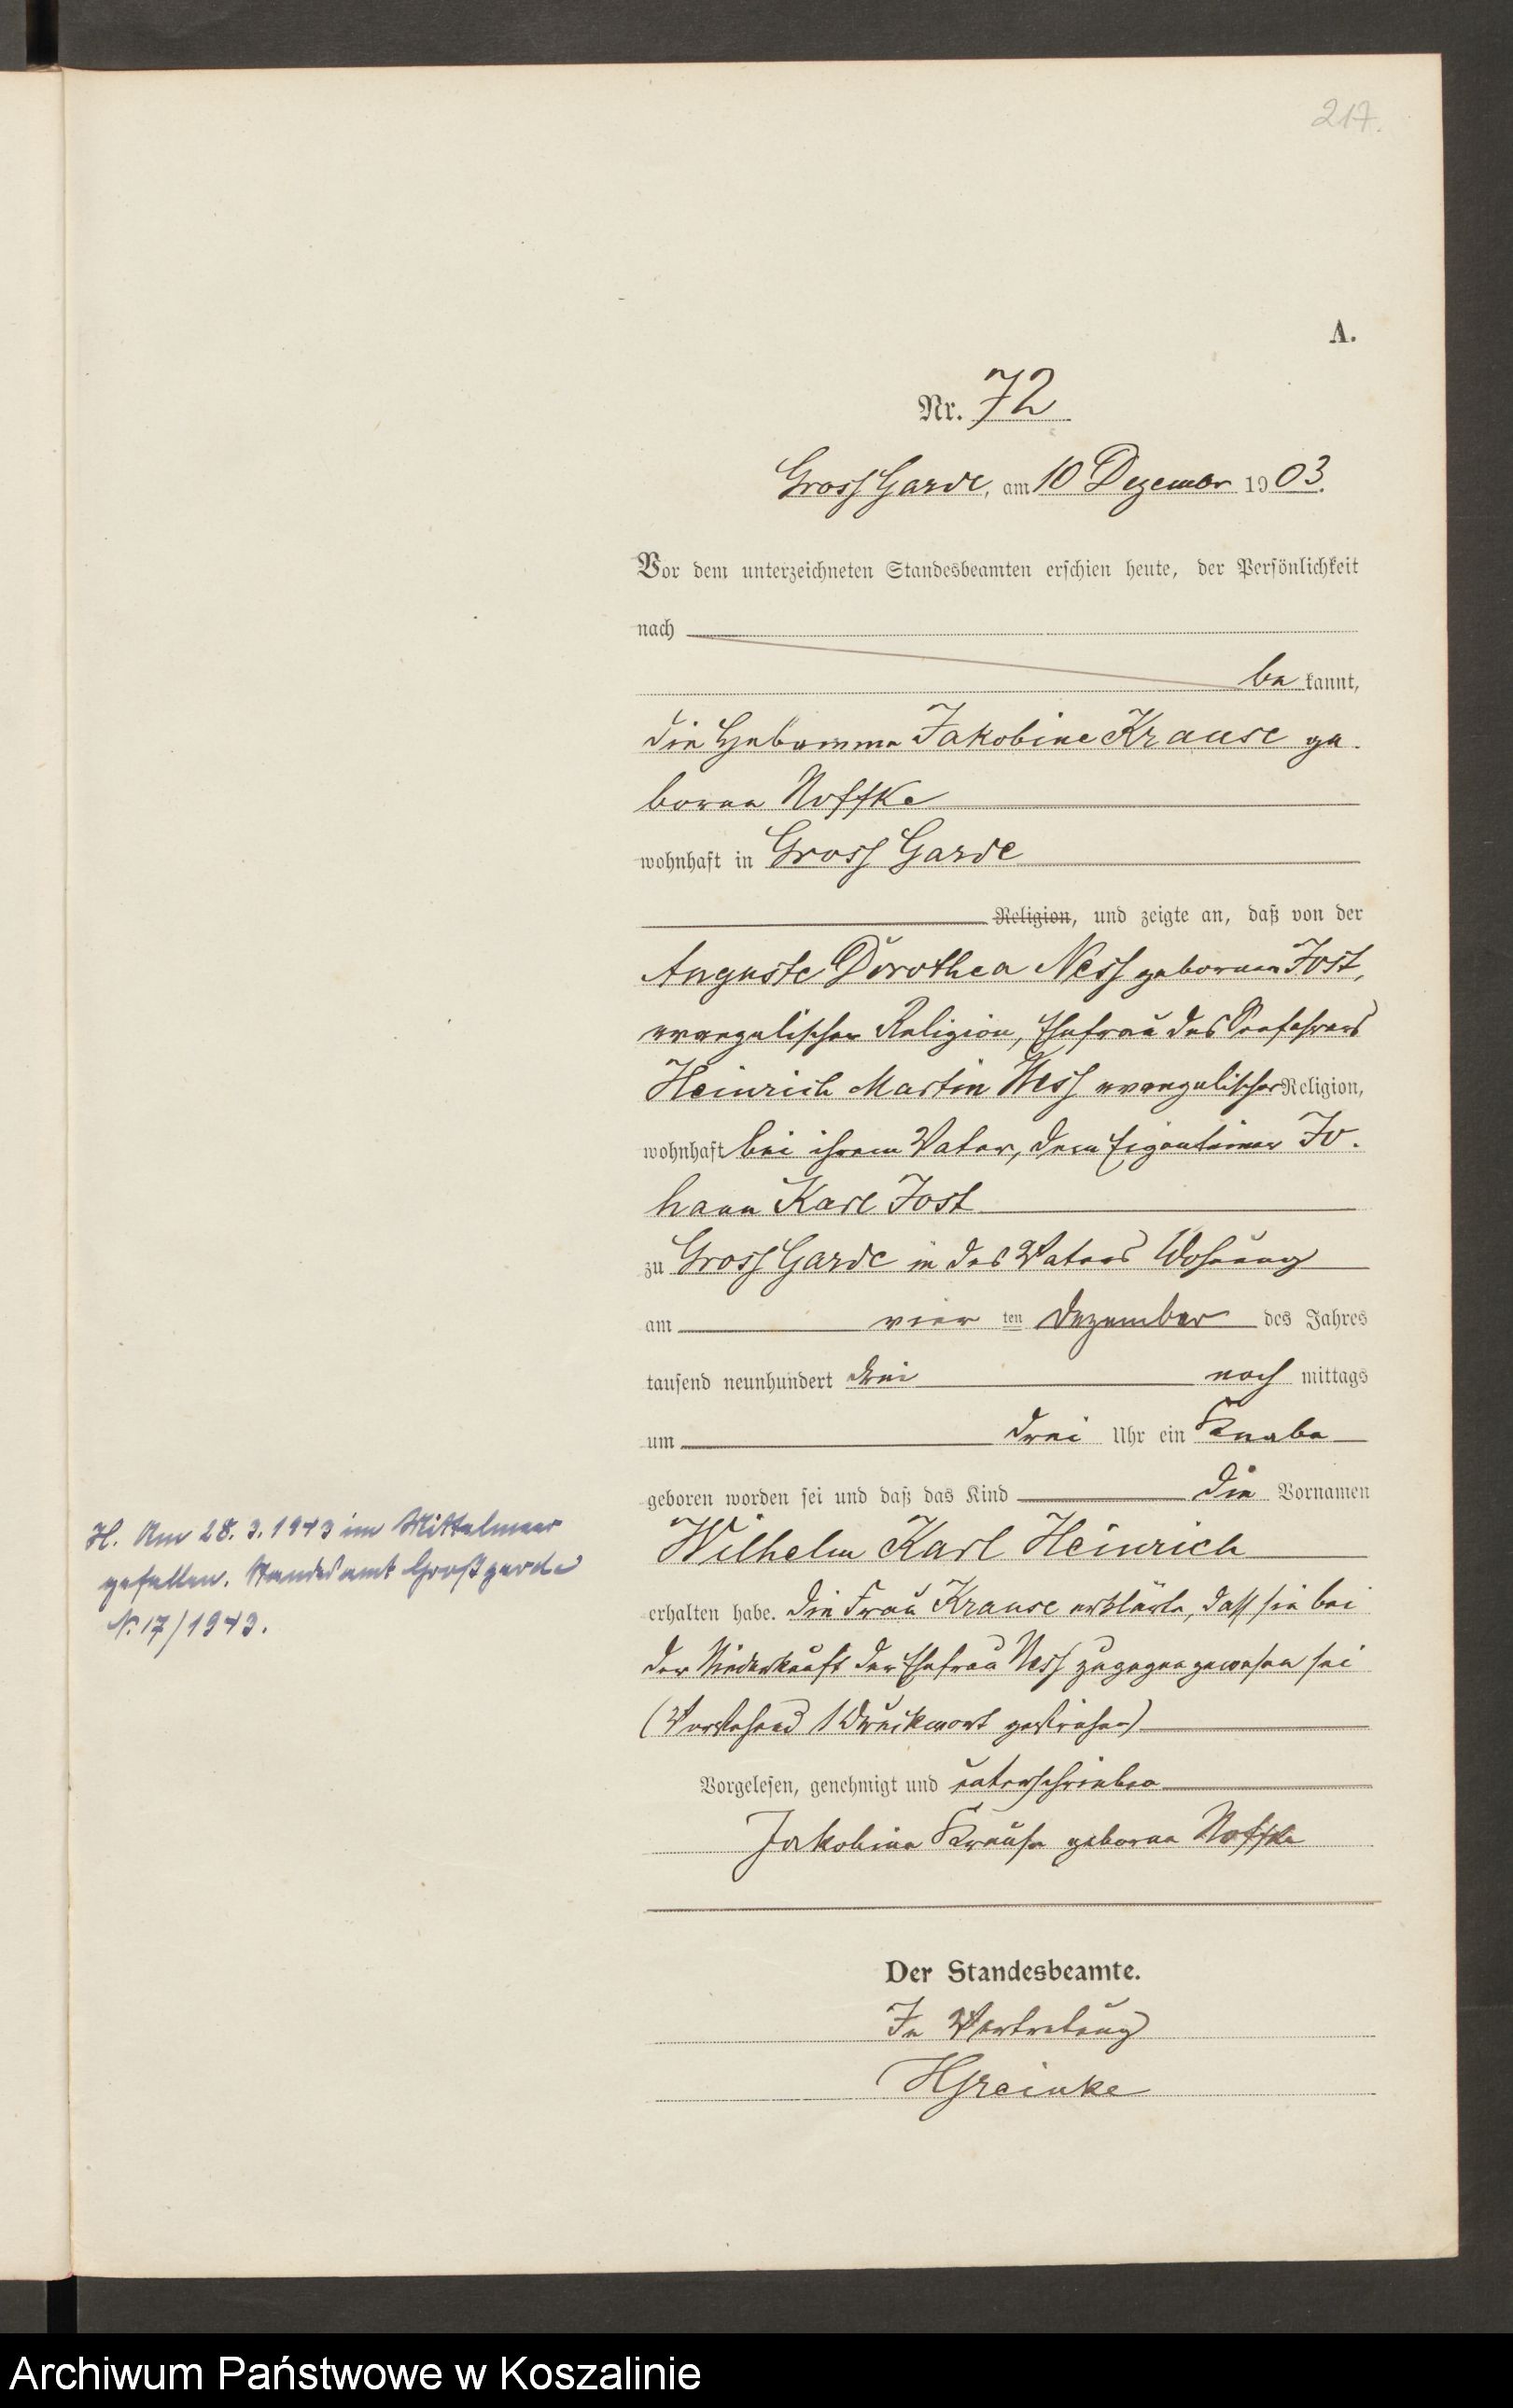 217.
A.
Nr. 72
Gross Garde, am 10 Dezember 1903.
Vor dem unterzeichneten Standesbeamten erschien heute, der Persönlichkeit
nach
be kannt,
die Hebamme Jakobine Krause ge-
borene Noffke
wohnhaft in Gross Garde
Religion, und zeigte an, daß von der
Auguste Dorothea Ness geborenen Jost,
evangelischer Religion, Ehefrau des Seefahrers
Heinrich Martin Ness evangelischer Religion,
wohnhaft bei ihrem Vater, dem Eigentümer Jo-
hann Karl Jost
zu Gross Garde in des Vaters Wohnung
am vier ten Dezember des Jahres
tausend neunhundert drei nach mittags
um drei Uhr ein Knabe
geboren worden sei und daß das Kind die Vornamen
Wilhelm Karl Heinrich
H. Am 28.3.1943 im Mittelmeer
gefallen. Standesamt Großgarde
Nr. 17/1943.
erhalten habe. Die Frau Krause erklärte, daß sie bei
der Niederkunft der Ehefrau Ness zugegen gewesen sei
(Vorstehend 1 Druckwort gestrichen)
Vorgelesen, genehmigt und unterschrieben
Jakobine Krause geborene Noffke
Der Standesbeamte.
In Vertretung
HGreinke
Archiwum Państwowe w Koszalinie